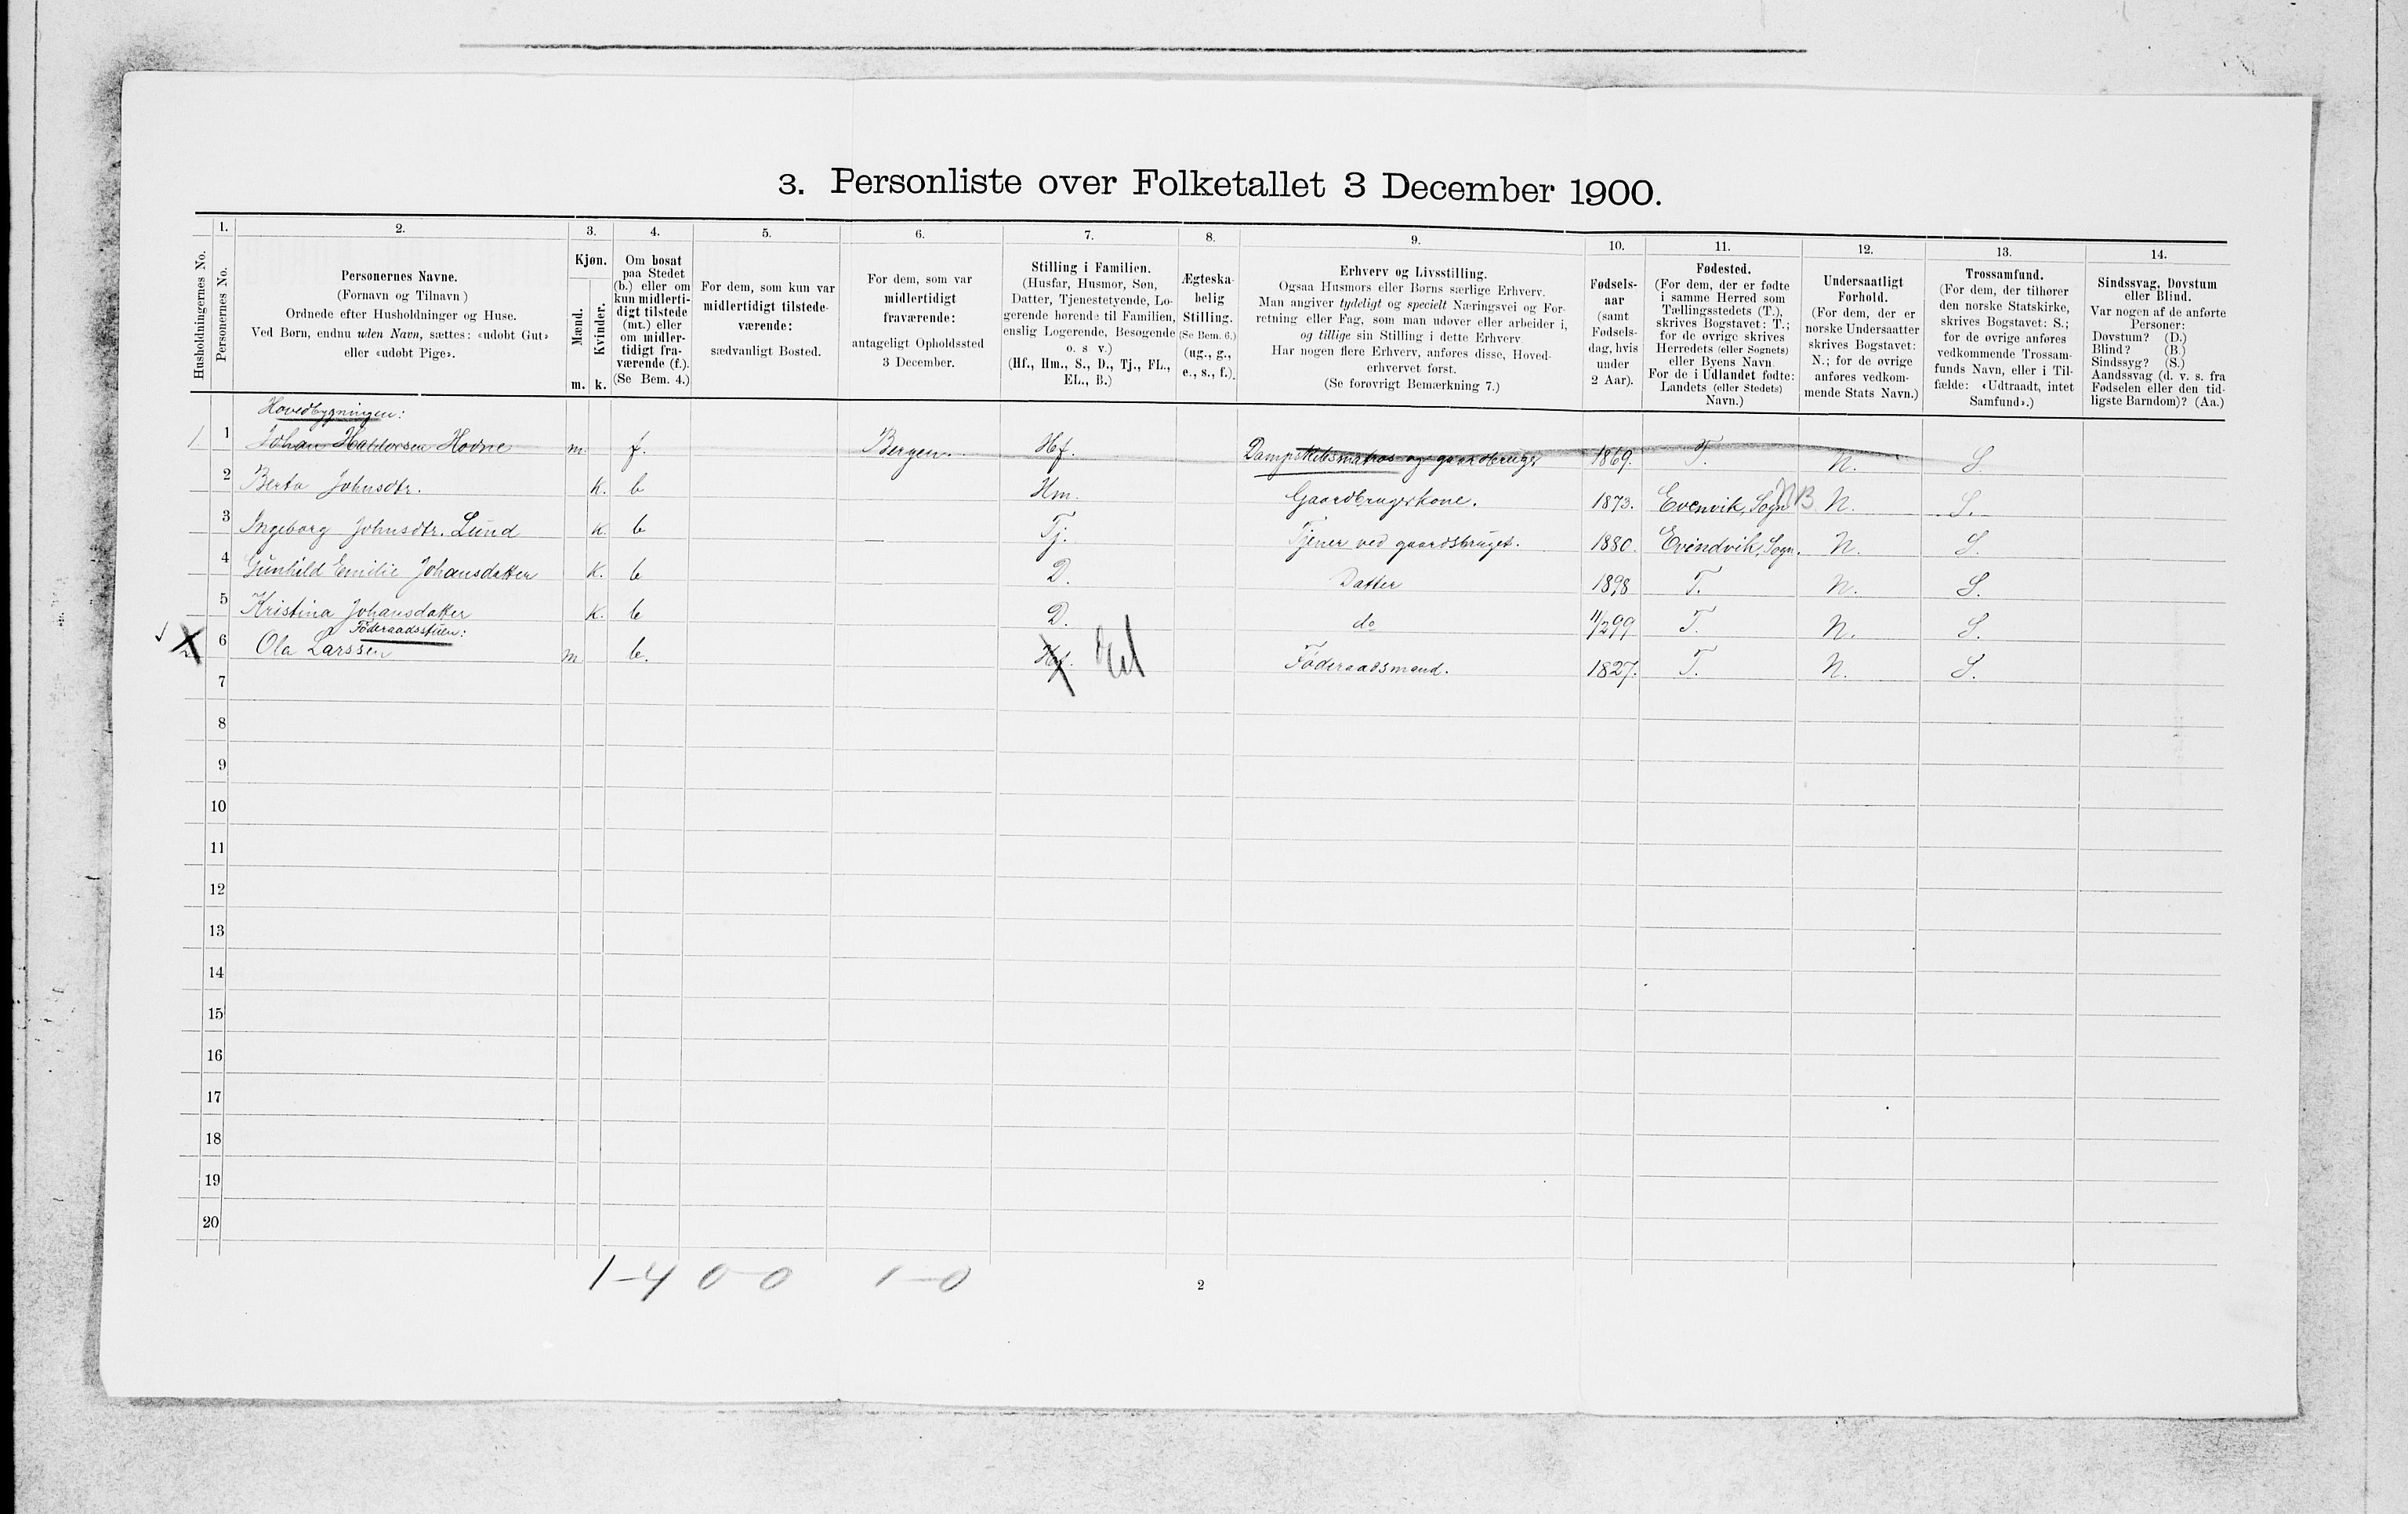 3. Personliste over Folketallet 3 December 1900.
1. 2. 3. 4. 5. 6. 7. 8. 9. 10. 11. 12. 13. 14.
Husholdningernes No.
Personernes No.
Personernes Navne.
(Fornavn og Tilnavn)
Ordnede efter Husholdninger og Huse.
Ved Børn, endnu uden Navn, sættes: «udøbt Gut»
eller «udøbt Pige».
Kjøn.
Mænd.
Kvinder.
m. k.
Om bosat
paa Stedet
(b.) eller om
kun midlerti-
digt tilstede
(mt.) eller
om midler-
tidigt fra-
værende (f.).
(Se Bem. 4.)
For dem, som kun var
midlertidigt tilstede-
værende:
sædvanligt Bosted.
For dem, som var
midlertidigt
fraværende:
antageligt Opholdssted
3 December.
Stilling i Familien.
(Husfar, Husmor, Søn,
Datter, Tjenestetyende, Lo-
gerende hørende til Familien,
enslig Logerende, Besøgende
o. s v.)
(Hf., Hm., S., D., Tj., FL.,
EL., B.)
Ægteska-
belig
Stilling.
(Se Bem. 6.)
(ug., g.,
e., s., f.).
Erhverv og Livsstilling.
Ogsaa Husmors eller Børns særlige Erhverv.
Man angiver tydeligt og specielt Næringsvei og For-
retning eller Fag, som man udøver eller arbeider i,
og tillige sin Stilling i dette Erhverv.
Har nogen flere Erhverv, anføres disse, Hoved-
erhvervet først.
(Se forøvrigt Bemærkning 7.)
Fødsels-
aar
(samt
Fødsels-
dag, hvis
under
2 Aar).
Fødested.
(For dem, der er fødte
i samme Herred som
Tællingsstedets (T.),
skrives Bogstavet: T.;
for de øvrige skrives
Herredets (eller Sognets)
eller Byens Navn.
For de i Udlandet fødte:
Landets (eller Stedets)
Navn.)
Undersaatligt
Forhold.
(For dem, der er
norske Undersaatter
skrives Bogstavet:
N.; for de øvrige
anføres vedkom-
mende Stats Navn.)
Trossamfund.
(For dem, der tilhører
den norske Statskirke,
skrives Bogstavet: S.;
for de øvrige anføres
vedkommende Trossam-
funds Navn, eller i Til-
fælde: «Udtraadt, intet
Samfund».)
Sindssvag, Døvstum
eller Blind.
Var nogen af de anførte
Personer:
Døvstum? (D.)
Blind? (B.)
Sindssyg? (S.)
Aandssvag (d. v. s. fra
Fødselen eller den tid-
ligste Barndom)? (Aa.)
Hovedbygningen:
1. 1 Johan Haldorsen Hovne m. f. Bergen. Hf. Dampskibsmatros og gaardbruger 1869. T. N. S.
2 Berta Johnsdtr. k. b Hm. Gaardbrugerkone. 1873. Evenvik, Sogn NB N. S.
3 Ingeborg Johnsdtr. Lund k. b — Tj. Tjener ved gaardsbruget. 1880. Evindvik, Sogn. N. S.
4 Gunhild Emilie Johansdatter k. b D. Datter 1898 T. N. S.
5 Kristina Johansdatter k. b D. do 11/2 99 T. N. S.
Föderaadsstuen:
6 Ola Larssen m b. Hf. El Föderaadsmand. 1827. T. N. S.
7
8
9
10
11
12
13
14
15
16
17
18
19
20
1-4 0-0 1-0
2